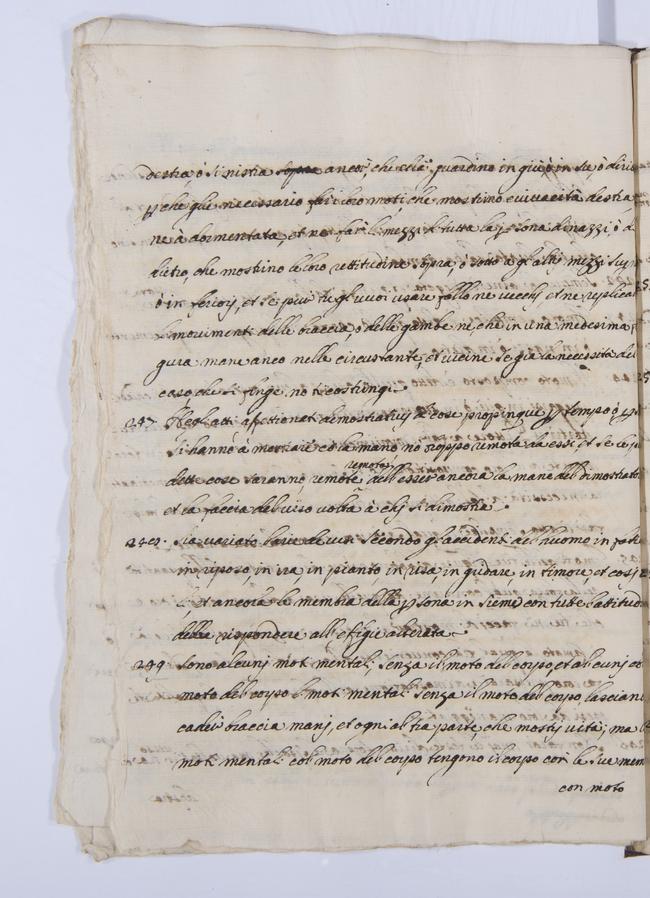 destra, ò sinistra sopra ancor, che essi guardino in giù ò in su ò
che gl'è necessario far i loro moti, che mostrino vivacità desta,
ne à dormentata, et ne far li mezzi di tutta la psona dinazzi, ò
dietro, che mostrino le loro rettitudine sopra, ò sotto a gl'altri mezzi
ò inferiorj, et se pur tu gli vuoi usare fallo ne vecchj et ne replicar
li movimenti delle braccia, o delle gambe ne, che in una medesima
gura, mane anco nelle circustante, et vicine se già la necessità del
caso, che si finge, nõ ti costringi.
247 Negl'atti affettionati dimostrativj di cose propinque p tempo ò p
si hanno à mostrare cõ la mano nõ troppo remota da essi, et se le
dette cose saranno remote remota deb'esser ancora la mano del dimostratore
et la faccia del viso volta à chj si dimostra.
248. Sia variato l'arie de visi secondo gl'accidenti del huomo in
in riposo, in ira, in pianto in risa, in gridare, in timore, et cosj
et ancora le membra della psona insieme con tutta l'attitudine
debba rispondere all'efigie alterata.
249 Sono alcunj moti mentali, senza il moto del corpo et alcunj col
moto del corpo li moti mentali senza il moto del corpo, lasciano
cader braccia manj, et ogni altra parte che mostrj vita; ma li
moti mentali col moto del corpo tengono il corpo con le sue
con moto